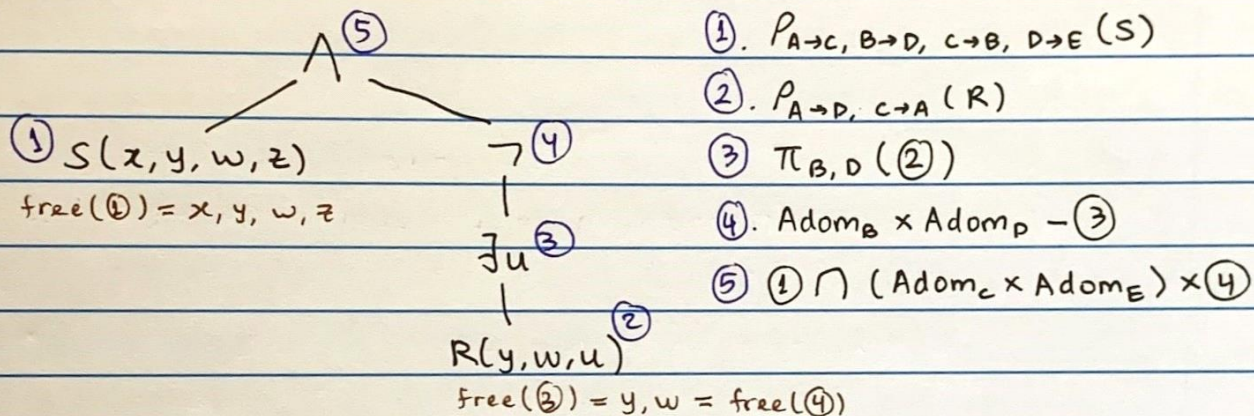 ∧ ⑤
① S(x, y, w, z)
free(①) = x, y, w, z
¬ ④
∃u ③
R(y, w, u) ②
free(③) = y, w = free(④)
①. ρ A→C, B→D, C→B, D→E (S)
②. ρ A→D, C→A (R)
③ π B, D (②)
④. Adom B × Adom D − ③
⑤ ① ∩ (Adom C × Adom E) × ④